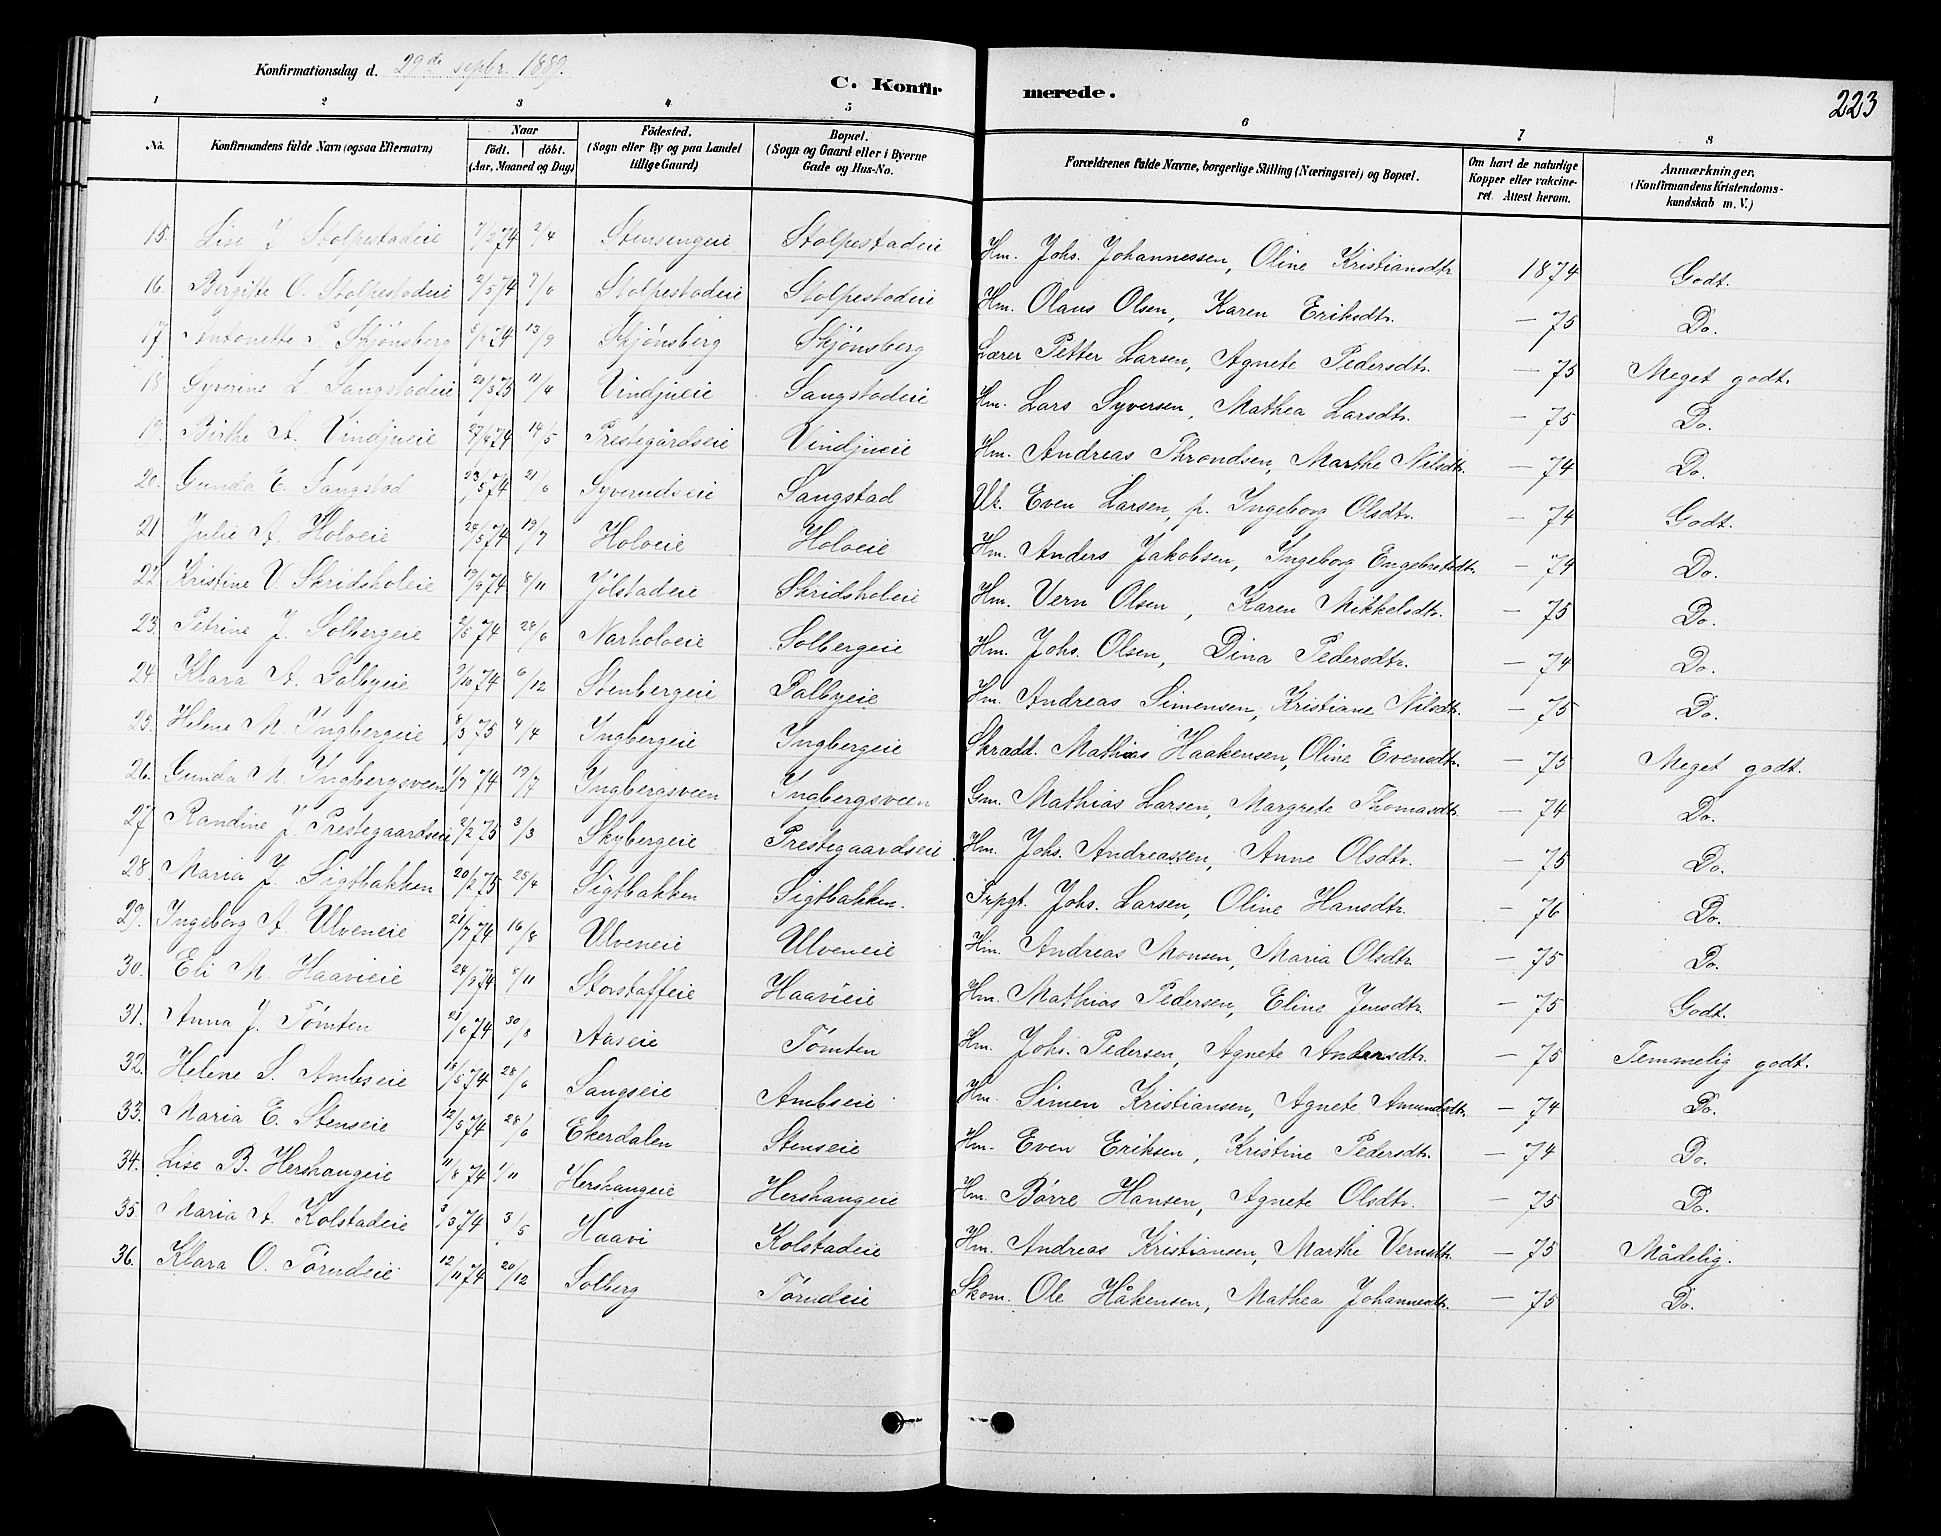 Konfirmationsdag d. 29de septbr. 1889.
C. Konfirmerede.
223
1 2 3 4 5 6 7 8
No. Konfirmandens fulde Navn (ogsaa Efternavn) Naar födt. döbt. (Aar, Maaned og Dag) Födested. (Sogn eller By og paa Landet tillige Gaard) Bopæl. (Sogn og Gaard eller i Byerne Gade og Hus-No. Forældrenes fulde Navne, borgerlige Stilling (Næringsvei) og Bopæl. Om havt de naturlige Kopper eller vakcineret. Attest herom. Anmærkninger. (Konfirmandens Kristendomskundskab m. V.)
15. Lise J. Stolpestadeie 7/2 74 2/4 Stensengeie Stolpestadeie Hm. Johs. Johannessen, Oline Kristiansdtr. 1874 Godt.
16. Bergitte O. Stolpestadeie 2/5 74 7/6 Stolpestadeie Stolpestadeie Hm. Olaus Olsen, Karen Eriksdtr. — 75 Do.
17. Antonette P. Skjönsberg 74 13/9 Skjönsberg Skjönsberg Lærer Petter Larsen, Agnete Pedersdtr. — 75 Meget godt.
18. Syverine L. Sangstadeie 20/3 75 11/4 Vindjueie Sangstadeie Hm. Lars Syversen, Mathea Larsdtr. — 75 Do.
19. Birthe A. Vindjueie 74 14/5 Prestegårdseie Vindjueie Hm. Andreas Throndsen, Marthe Nilsdtr. — 74 Do.
20. Gunda E. Sangstad 23/5 74 21/6 Syverudseie Sangstad Uk. Even Larsen, p. Ingeborg Olsdtr. — 74 Godt.
21. Julie A. Holoeie 24/5 74 19/7 Holoeie Holoeie Hm. Anders Jakobsen, Ingeborg Engebretsdtr. — 74 Do.
22. Kristine V. Skridsholeie 19/9 74 8/11 Jölstadeie Skridsholeie Hm. Vern Olsen, Karen Mikkelsdtr. — 75 Do.
23. Petrine J. Solbergeie 2/5 74 28/6 Narholoeie Solbergeie Hm. Johs. Olsen, Dina Pedersdtr. — 74 Do.
24. Klara A. Dalbyeie 9/10 74 6/12 Stenbergeie Dalbyeie Hm. Andreas Simensen, Kristiane Nilsdtr. — 75 Do.
25. Helene M. Ingbergeie 8/3 75 4/4 Ingbergeie Ingbergeie Skrædd. Mathias Haakensen, Oline Evensdtr. — 75 Meget godt.
26. Gunda M. Ingbergsveen 74 19/7 Ingbergsveen Ingbergsveen Gm. Mathias Larsen, Margrete Thomasdtr. — 74 Do.
27. Randine J. Prestegaardseie 2/2 75 3/3 Skybergeie Prestegaardseie Hm. Johs. Andreassen, Anne Olsdtr. — 75 Do.
28. Maria J. Sigtbakken 20/2 75 25/4 Sigtbakken Sigtbakken. Frpgt. Johs. Larsen, Oline Hansdtr. — 76 Do.
29. Ingeborg A. Ulveneie 21/7 74 16/8 Ulveneie Ulveneie Hm. Andreas Monsen, Maria Olsdtr. — 75 Do.
30. Eli M. Haavieie 24/9 74 8/11 Storstaffeie Haavieie Hm. Mathias Pedersen, Eline Jensdtr. — 75 Godt.
31. Anna J. Tömten 21/6 74 30/8 Aaseie Tömten Hm. Johs. Pedersen, Agnete Andersdtr. — 75 Temmelig godt.
32. Helene S. Ambseie 18/5 74 28/6 Sangseie Ambseie Hm. Simen Kristiansen, Agnete Amundsdtr. — 74 Do.
33. Maria E. Stenseie 12/5 74 28/6 Ekerdalen Stenseie Hm. Even Eriksen, Kristine Pedersdtr. — 74 Do.
34. Lise B. Hershaugeie 11/8 74 1/11 Hershaugeie Hershaugeie Hm. Börre Hansen, Agnete Olsdtr. — 75 Do.
35. Maria A. Kolstadeie 3/3 74 3/5 Haavi Kolstadeie Hm. Andreas Kristiansen, Marthe Vernsdtr. — 75 Mådelig.
36. Klara O. Törudeie 12/11 74 20/12 Solberg Törudeie Skom. Ole Håkensen, Mathea Johannesdtr. — 75 Do.